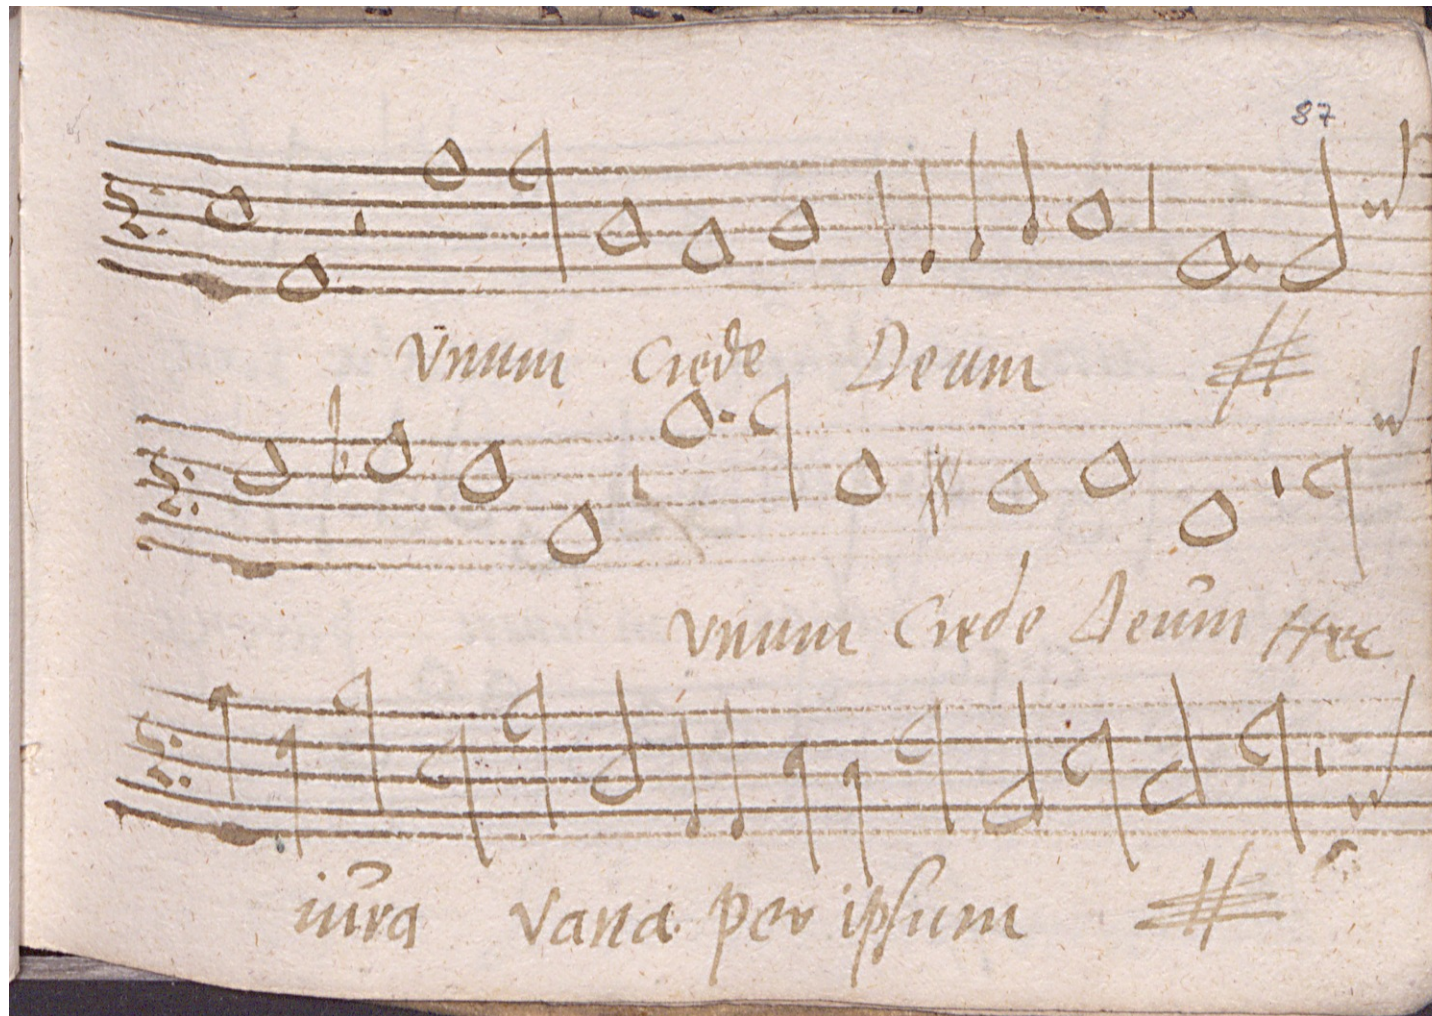 87
Vnum Crede Deum
vnum Crede Deũm Nec
iũra Vana per ipsum